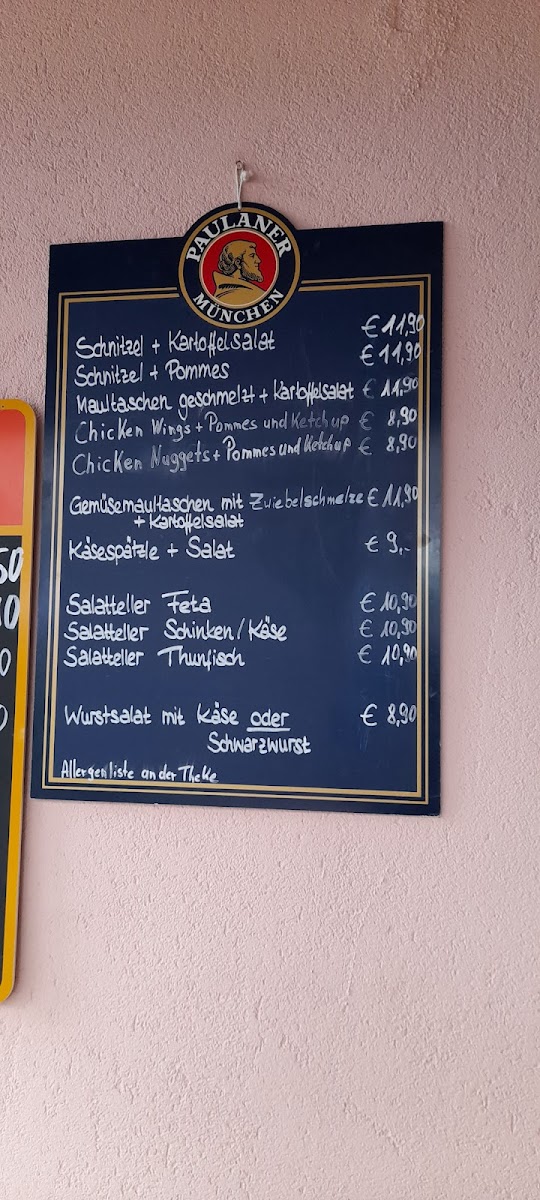 PAULANER
MÜNCHEN
Schnitzel + Kartoffelsalat € 11,90
Schnitzel + Pommes € 11,90
Maultaschen geschmelzt + Kartoffelsalat € 11,90
Chicken Wings + Pommes und Ketchup € 8,90
Chicken Nuggets + Pommes und Ketchup € 8,90
Gemüsemaultaschen mit Zwiebelschmelze € 11,90
+ Kartoffelsalat
Käsespätzle + Salat € 9,-
Salatteller Feta € 10,90
Salatteller Schinken/Käse € 10,90
Salatteller Thunfisch € 10,90
Wurstsalat mit Käse oder € 8,90
Schwarzwurst
Allergenliste an der Theke